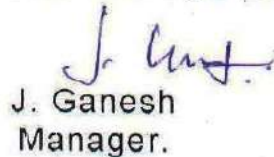 J. Ganesh
Manager.